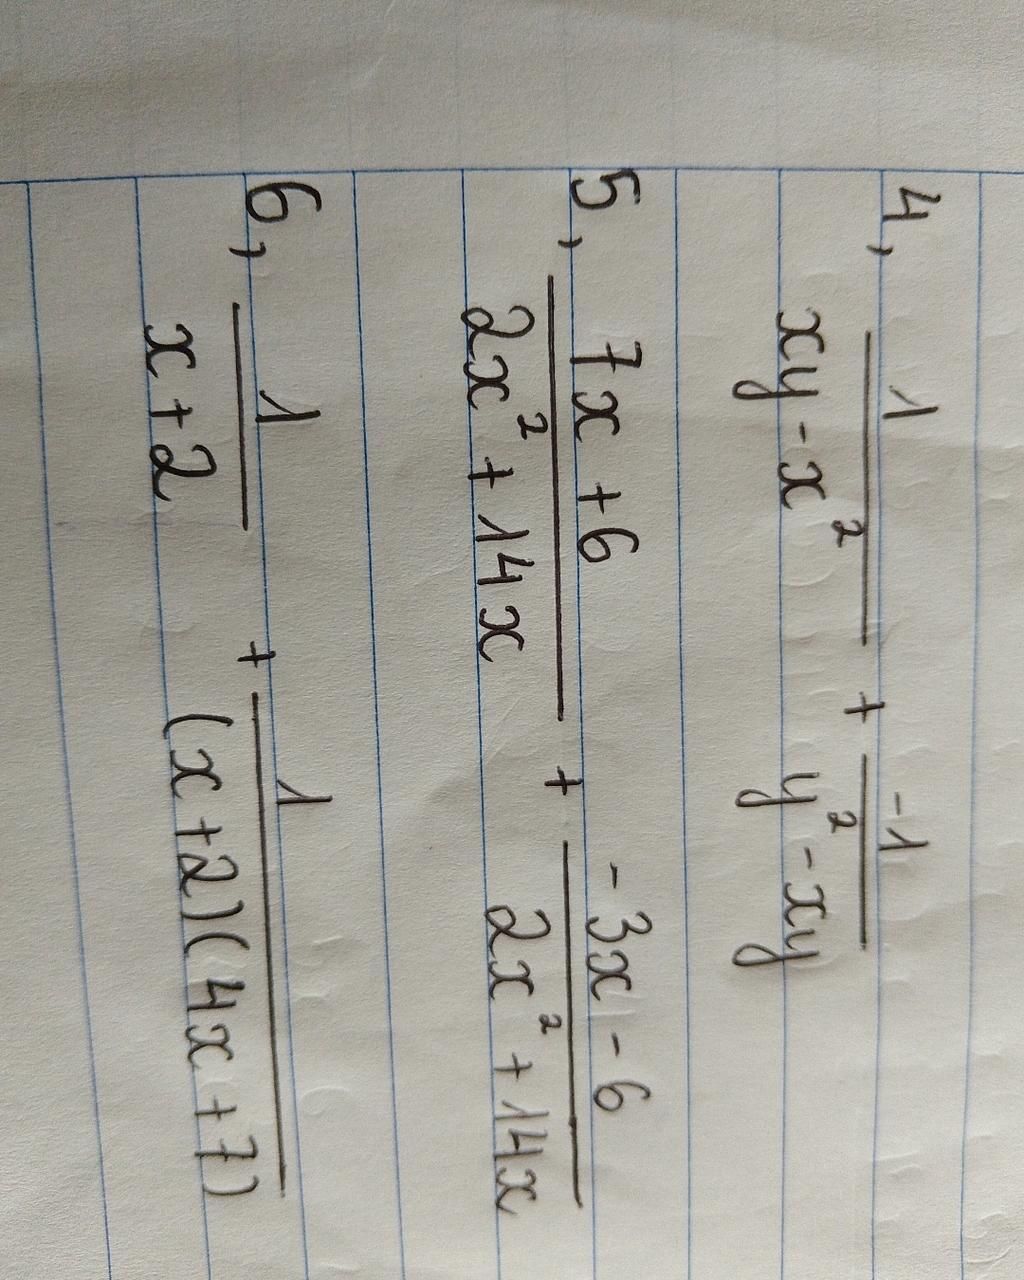 4, 1/(xy-x²) + -1/(y²-xy)
5, (7x+6)/(2x²+14x) + (-3x-6)/(2x²+14x)
6, 1/(x+2) + 1/((x+2)(4x+7))